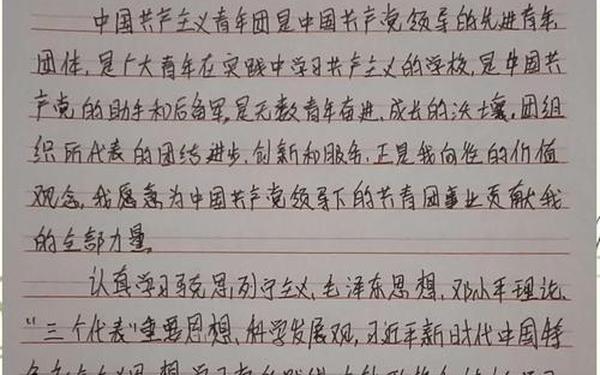 中国共产主义青年团是中国共产党领导的先进青年
团体,是广大青年在实践中学习共产主义的学校,是中国共
产党的助手和后备军,是无数青年奋进、成长的沃土壤,团组
织所代表的团结进步、创新和服务,正是我向往的价值
观念,我愿意为中国共产党领导下的共青团事业贡献我
的全部力量。
认真学习马克思列宁主义、毛泽东思想、邓小平理论、
“三个代表”重要思想、科学发展观、习近平新时代中国特